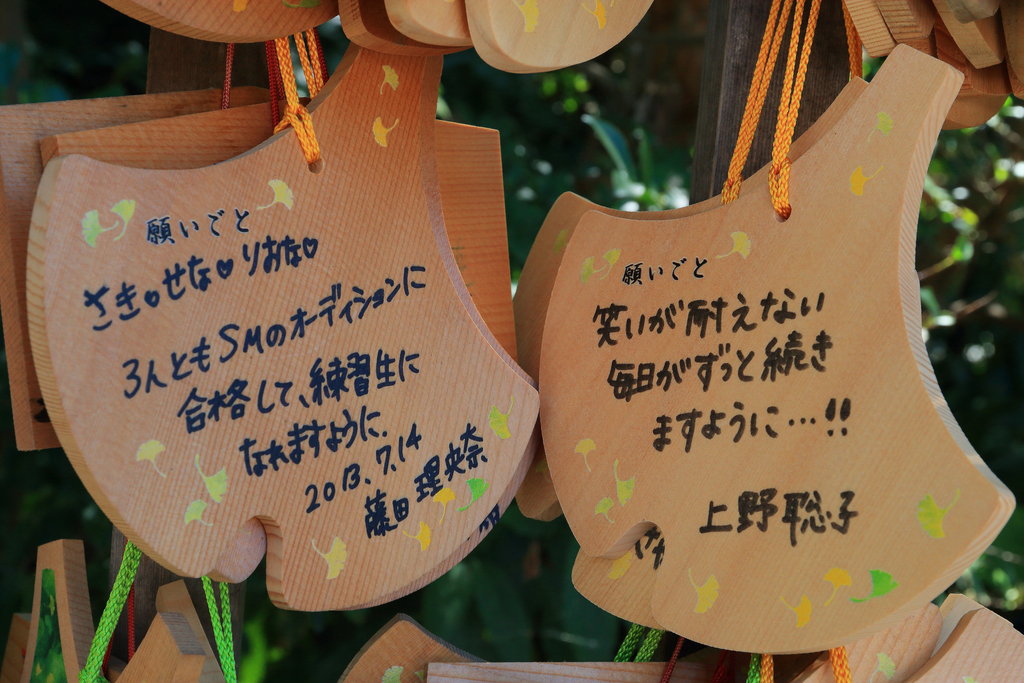 願いごと
さき♡せな♡りおな♡
3人ともSMのオーディションに
合格して、練習生に
なれますように。
2013.7.14
藤田 理央奈
願いごと
笑いが耐えない
毎日がずっと続き
ますように…!!
上野聡子